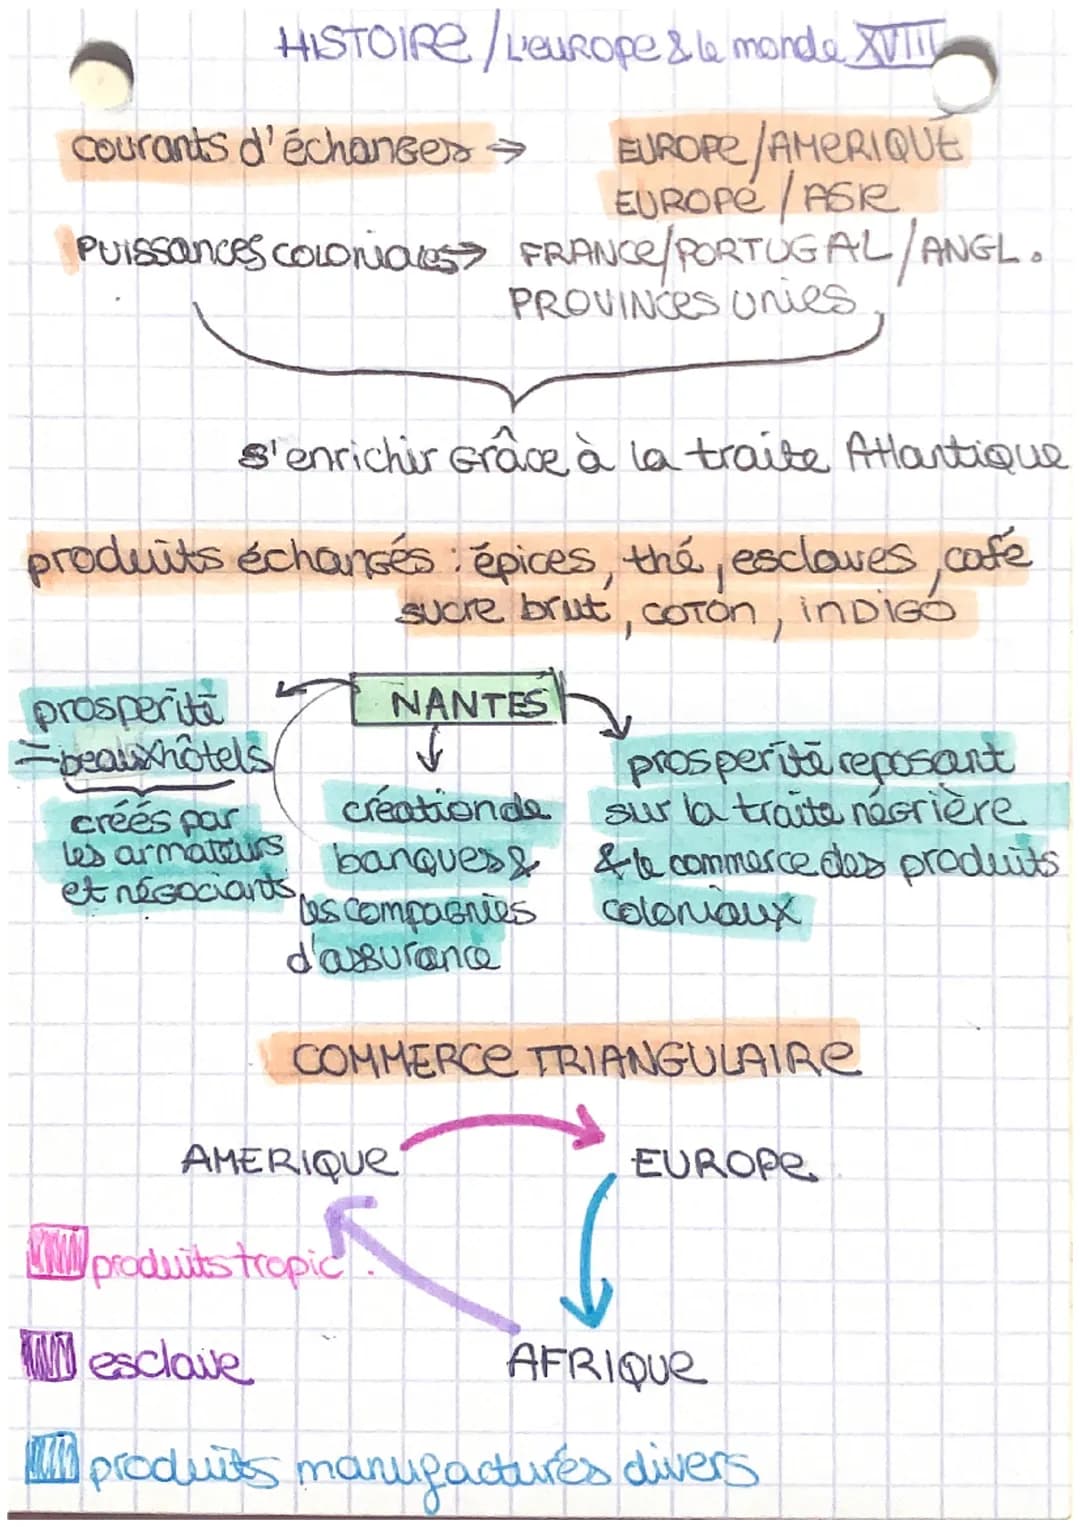 HISTOIRE / L'EUROPE & le monde XVIII
courants d'échanges → EUROPE/AMERIQUE
EUROPE / ASIE
PUISSANCES COLONIALES → FRANCE/PORTUGAL/ANGL.
PROVINCES UNIES
s'enrichir Grâce à la traite Atlantique
produits échangés : épices, thé, esclaves, café
sucre brut, COTON, INDIGO
NANTES
prosperité
= beaux hôtels
créés par
les armateurs
et négociants
création de
banques &
les compagnies
d'assurance
prosperité reposant
sur la traite négrière
& le commerce des produits
coloniaux
COMMERCE TRIANGULAIRE
AMERIQUE EUROPE
produits tropic.
esclave AFRIQUE
produits manufacturés divers